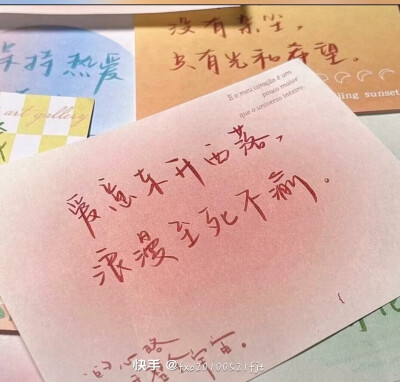 没有杂尘，
只有光和希望。
保持热爱
art gallery
ling sunset
E o meu coração é um
pouco maior
que o universo inteiro.
爱意东升西落，
浪漫至死不渝。
宇宙。
快手 @fxo20100521fjt